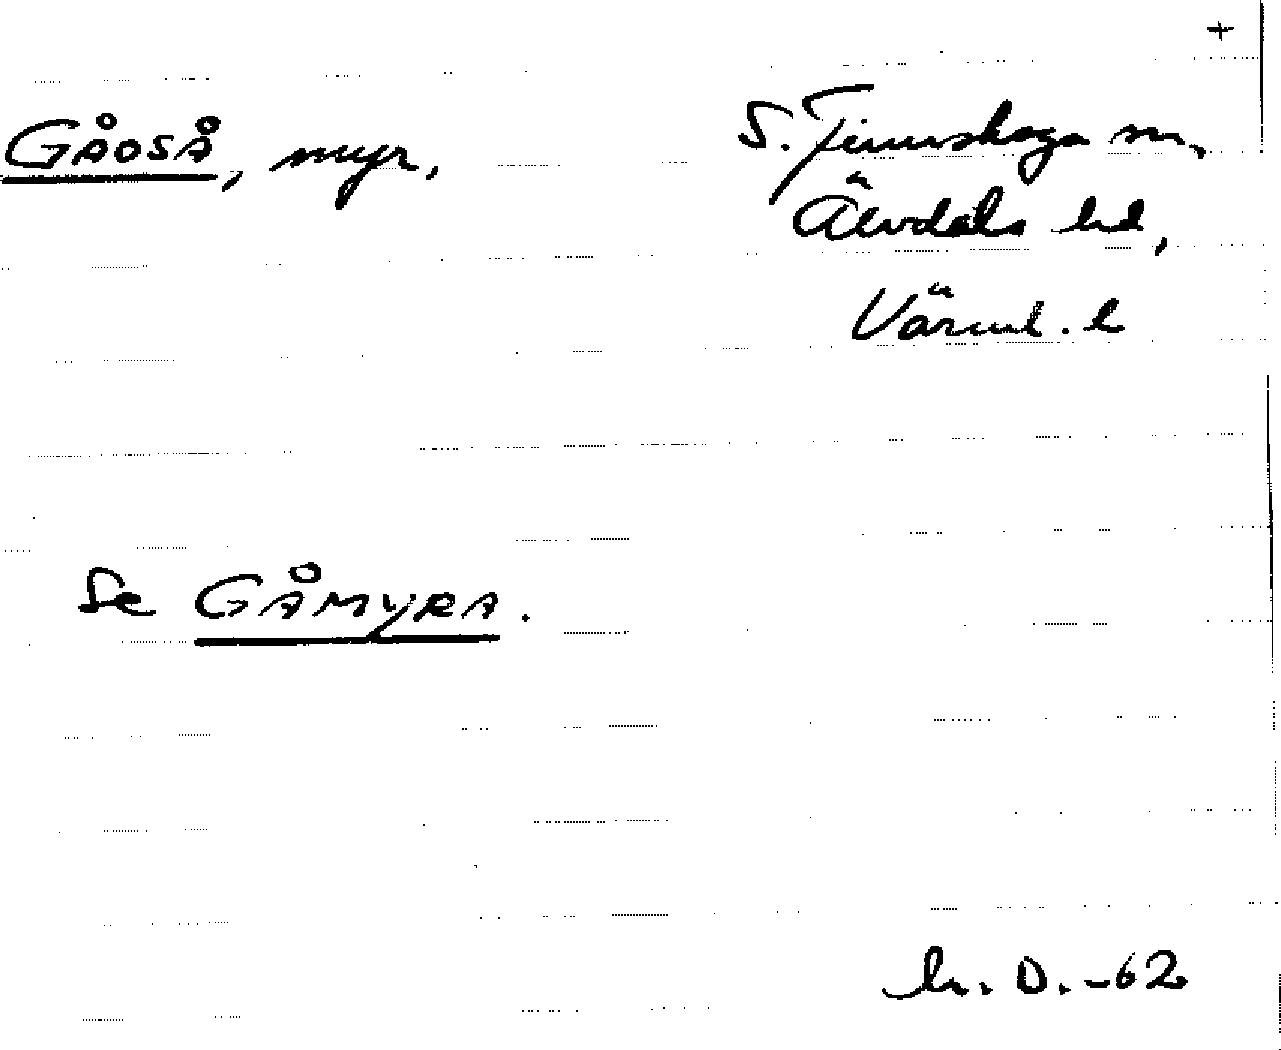 +
GÅOSÅ, myr,
S. Finnskoga sn,
Älvdals hd,
Värml. l
Se GÅMYRA.
h. D. -62